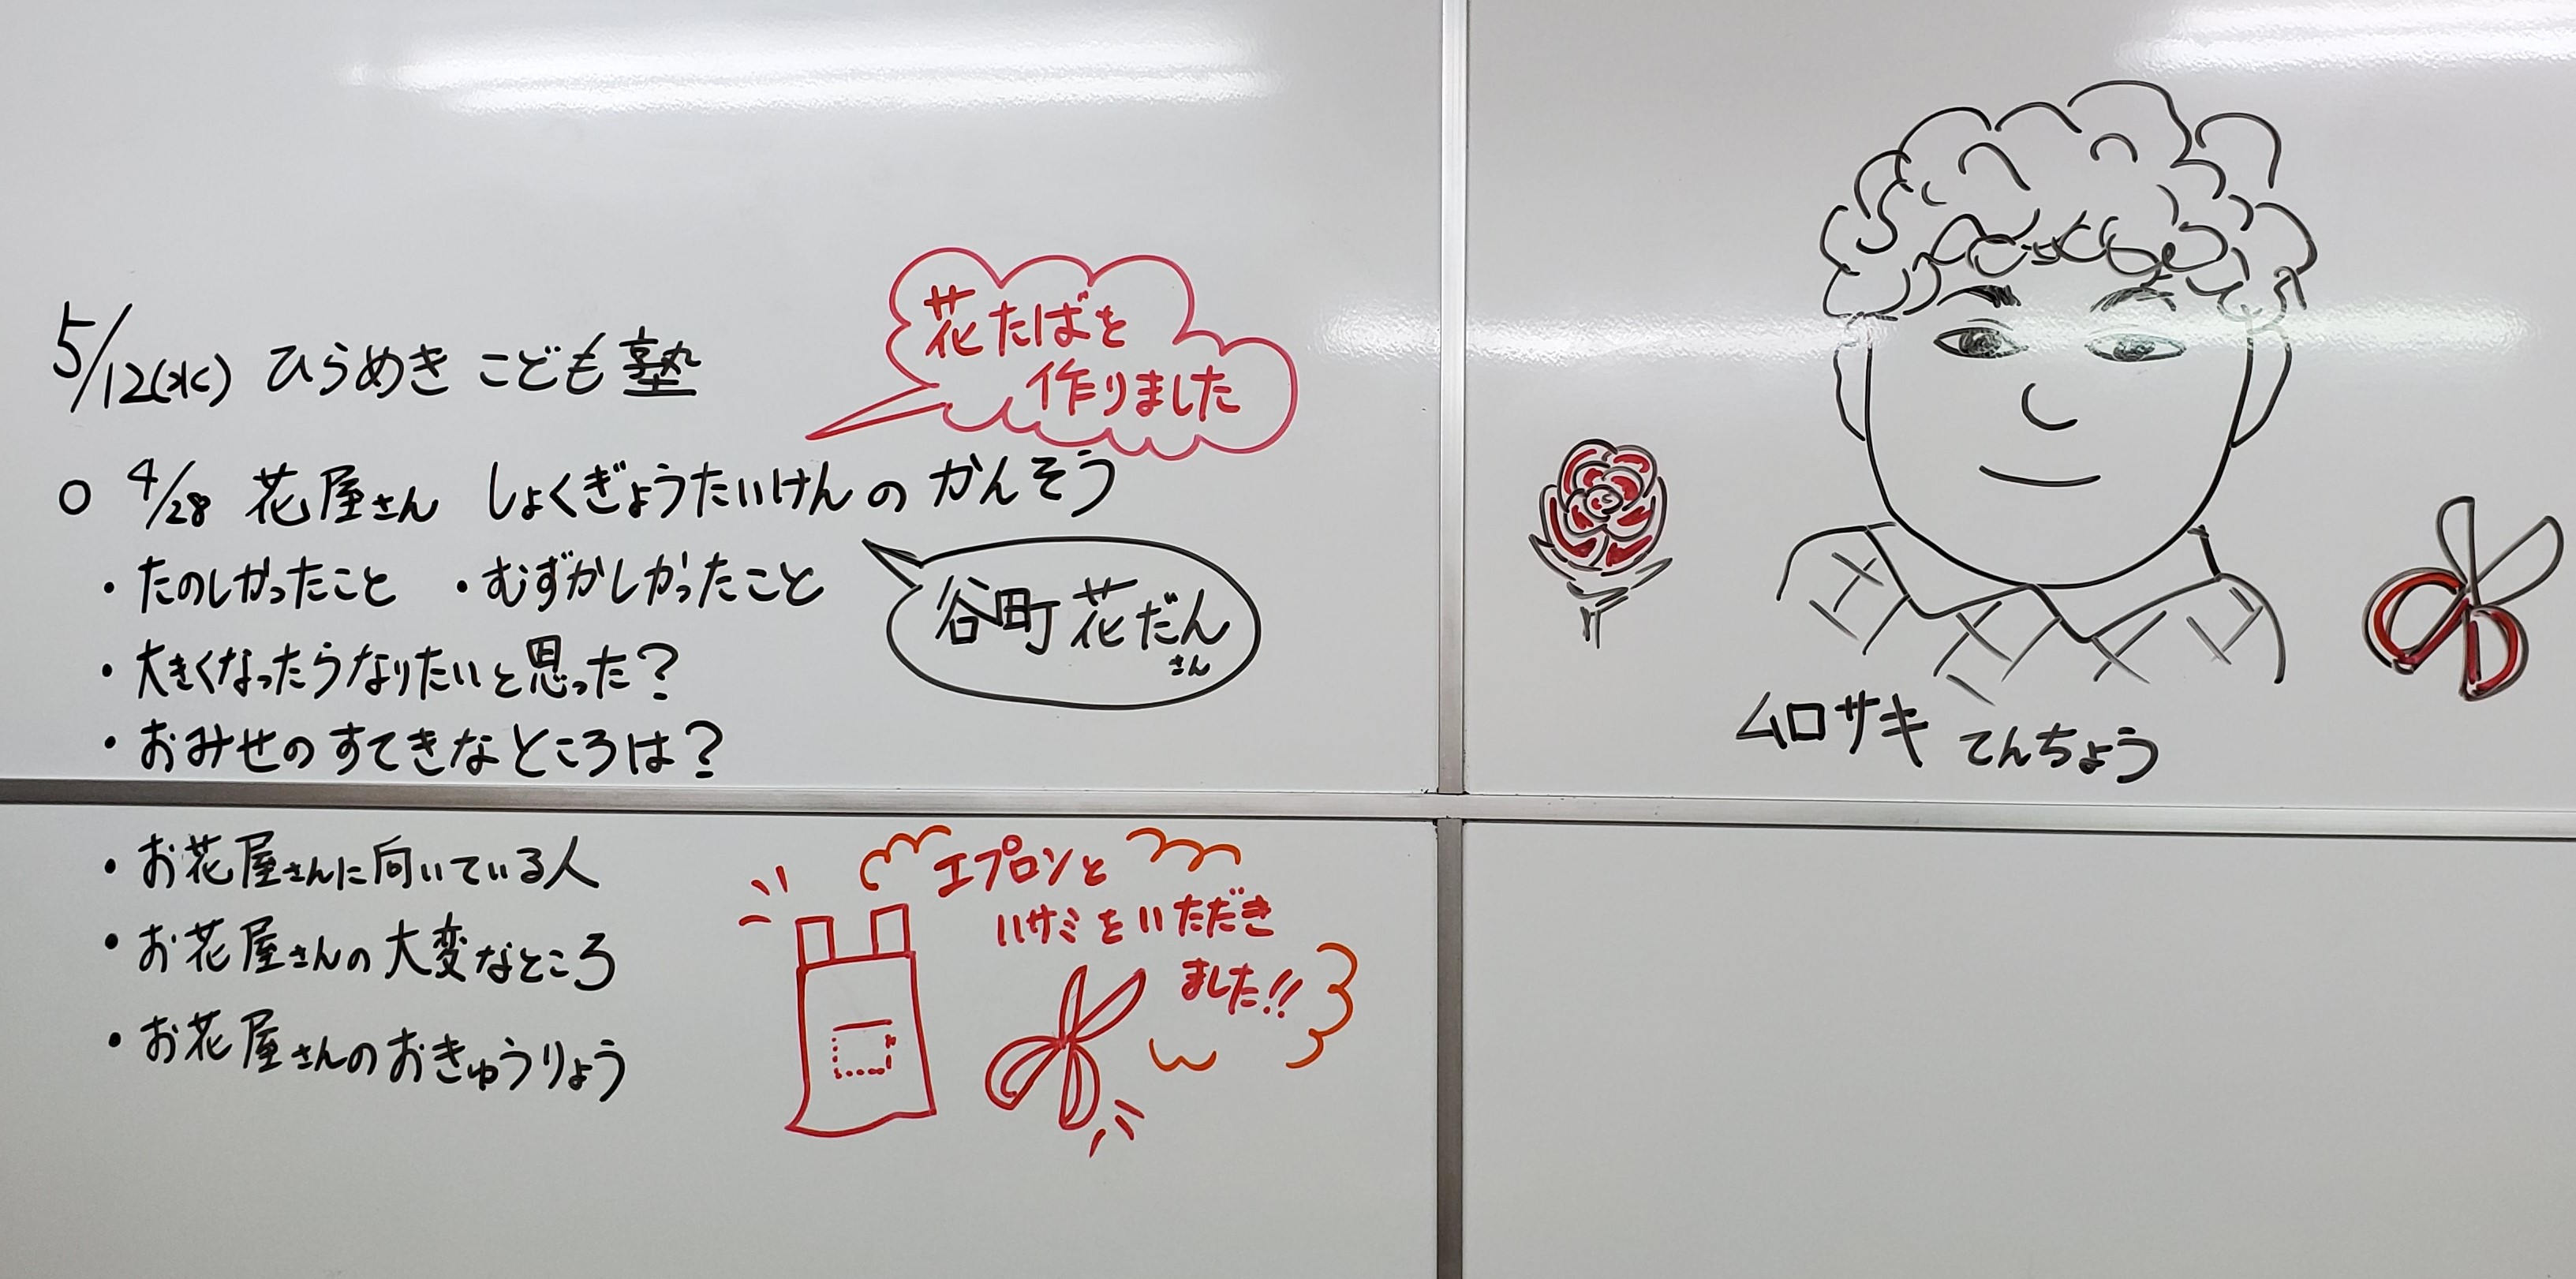 5/12(水) ひらめき こども塾
花たばを
作りました
○ 4/28 花屋さん しょくぎょうたいけんの かんそう
・たのしかったこと ・むずかしかったこと
谷町 花だん
さん
・大きくなったらなりたいと思った?
・おみせの すてきな ところは?
・お花屋さんに向いている人
・お花屋さんの大変なところ
・お花屋さんのおきゅうりょう
エプロンと
ハサミをいただき
ました!!
ムロサキ てんちょう